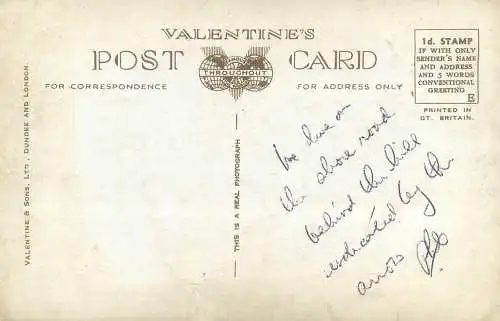 VALENTINE'S
POST CARD
THROUGHOUT
FOR CORRESPONDENCE
FOR ADDRESS ONLY
1d. STAMP
IF WITH ONLY
SENDER'S NAME
AND ADDRESS
AND 5 WORDS
CONVENTIONAL
GREETING
E
PRINTED IN
GT. BRITAIN.
VALENTINE & SONS, LTD., DUNDEE AND LONDON.
THIS IS A REAL PHOTOGRAPH
We live on
the shore road
behind the hill
indicated by the
arrow